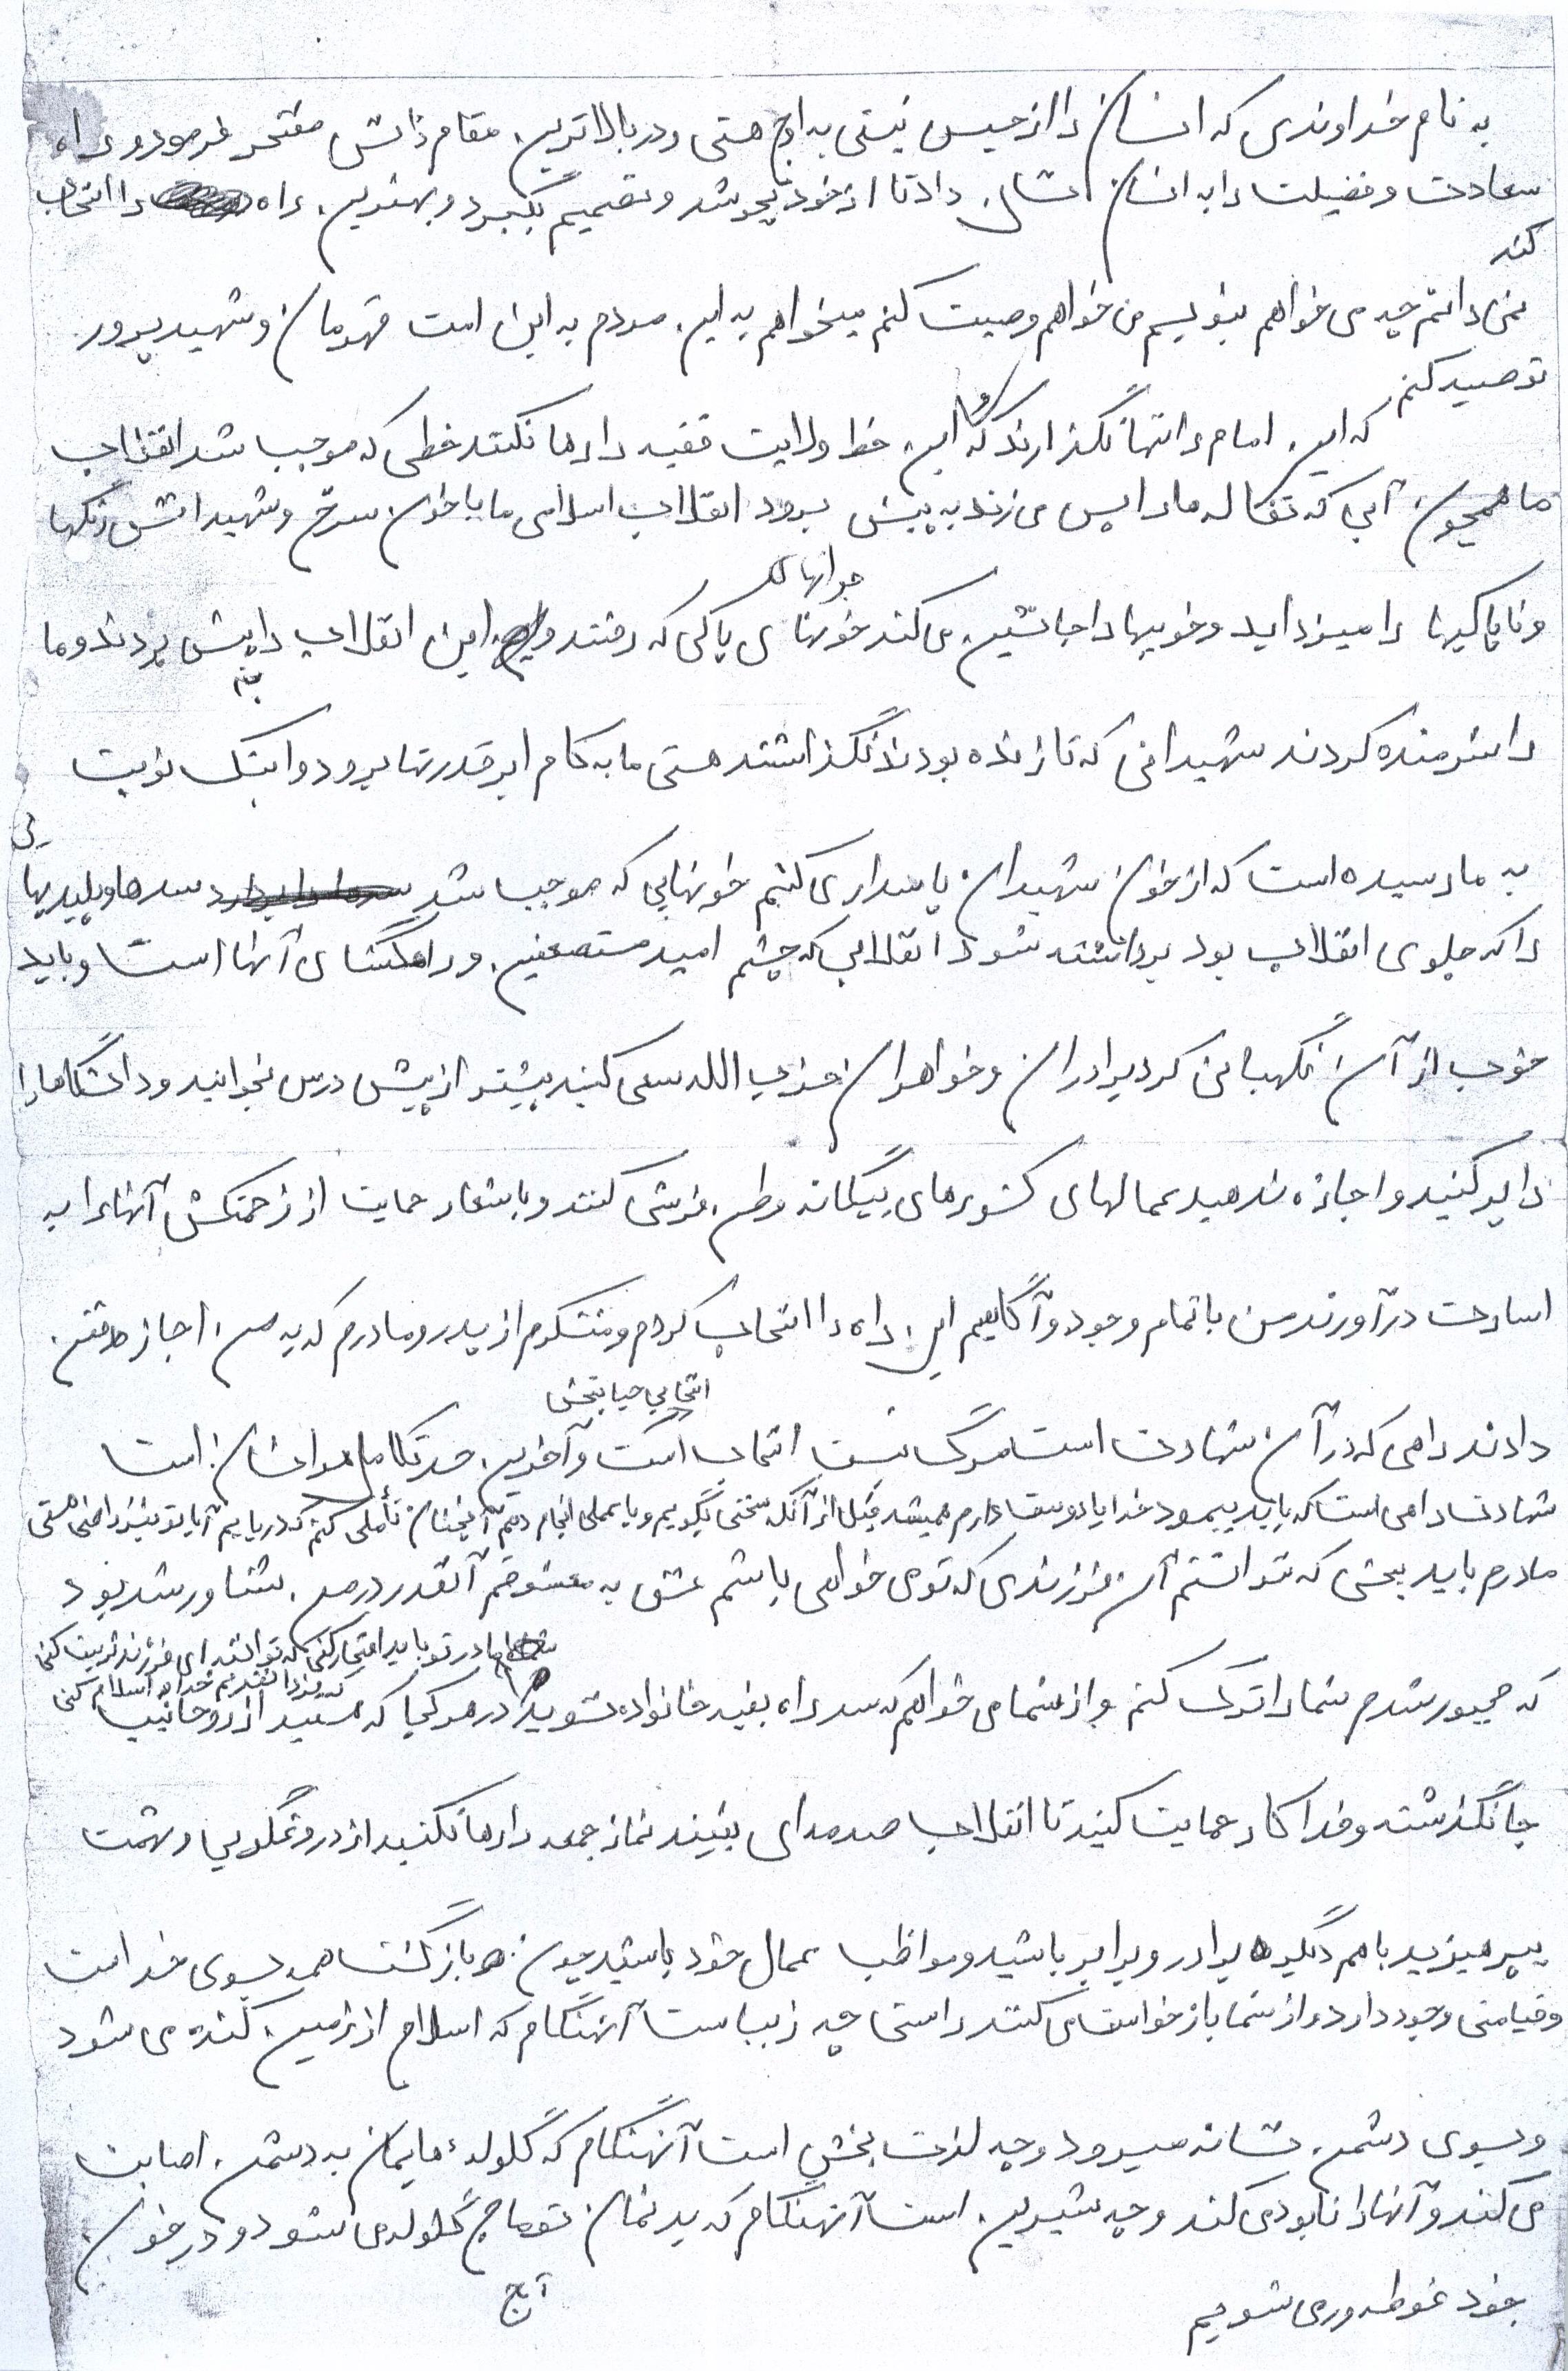 به نام خداوندی که انسان را از حیس نیستی به اوج هستی و در بالاترین مقام ذاتش مفتخر فرمود و راه
سعادت و فضیلت را به انسان نشان داد تا از خود بجوشد و تصمیم بگیرد و بهترین راه را انتخاب
کند
نمی دانم چه می خواهم بنویسم می خواهم وصیت کنم میخواهم به این مردم به این امت قهرمان و شهید پرور
توصیه کنم
که این امام را تنها نگذارند که این خط ولایت فقیه را رها نکنند خطی که موجب شد انقلاب
ما همچون آبی که تفاله ها را پس می زند به پیش برود انقلاب اسلامی ما با خون سرخ شهیدانش رنگها
و ناپاکیها را میزداید و خوبیها را جانشین می کند خونهای پاکی که رفتند و این انقلاب را به پیش بردند و ما
جوانهای
را شرمنده کردند شهیدانی که تا زنده بودند نگذاشتند هستی ما به کام ابرقدرتها برود و اینک نوبت
به ما رسیده است که از خون شهیدان پاسداری کنیم خونهایی که موجب شد سدها و پلیدیهایی
را که جلوی انقلاب بود برداشته شود انقلابی که چشم امید مستضعفین و راهگشای آنها است و باید
خوب از آن نگهبانی کرد برادران و خواهران حزب الله سعی کنید بیشتر از پیش درس بخوانید و دانشگاها را
دایر کنید و اجازه ندهید عمالهای کشورهای بیگانه وطن فرشی کنند و با شعار حمایت از زحمتکش آنها را به
اسارت درآورند من با تمام وجود و آگاهیم این راه را انتخاب کردم و متشکرم از پدر و مادرم که به من اجازه رفتن
دادند راهی که در آن شهادت است مرگ نیست انتخاب است و آخرین حد تکامل هر انسان است
انتخابی حیاتبخش
شهادت راهی است که باید پیمود خدایا دوستت دارم همیشه قبل از آنکه سخنی بگویم و یا عملی انجام دهم آنچنان تأملی کنم که دریابم آیا تو نیز راضی هستی
مادرم باید ببخشی که نتوانستم آن فرزندی که تو می خواهی باشم عشق به معشوقم آنقدر در من شناور شده بود
مادر تو باید افتخار کنی که توانسته ای فرزند تربیت کنی
که مجبور شدم شما را ترک کنم و از شما می خواهم که سد راه بقیه خانواده نشوید در هر کجا که هستید از روحانیت
جانگذشته و فداکار حمایت کنید تا انقلاب صدمه ای نبیند نماز جمعه را رها نکنید از دروغگویی و تهمت
بپرهیزید با هم دیگر برادر و برابر باشید و مواظب عمال خود باشید چون بازگشت همه بسوی خداست
و قیامتی وجود دارد و از شما بازخواست می کنند راستی چه زیباست آنهنگام که اسلام از زمین کنده می شود
و بسوی دشمن نشانه میرود و چه لذت بخش است آنهنگام که گلوله هایمان به دشمن اصابت
می کند و آنها را نابود می کند و چه شیرین است آنهنگام که بدنمان آماج گلوله می شود و در خون
خود غوطه ور می شویم